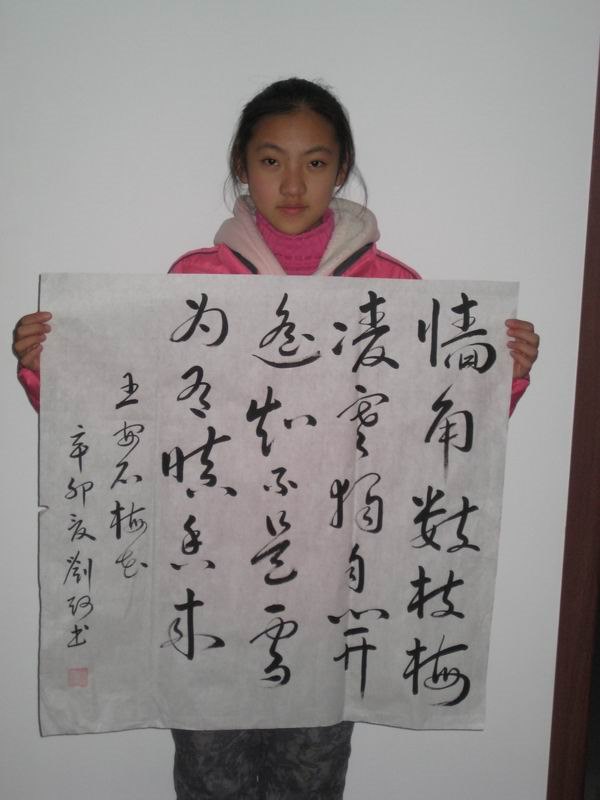 墙角数枝梅
凌寒獨自開
遥知不是雪
为有暗香来
王安石梅花
辛卯夏劉书